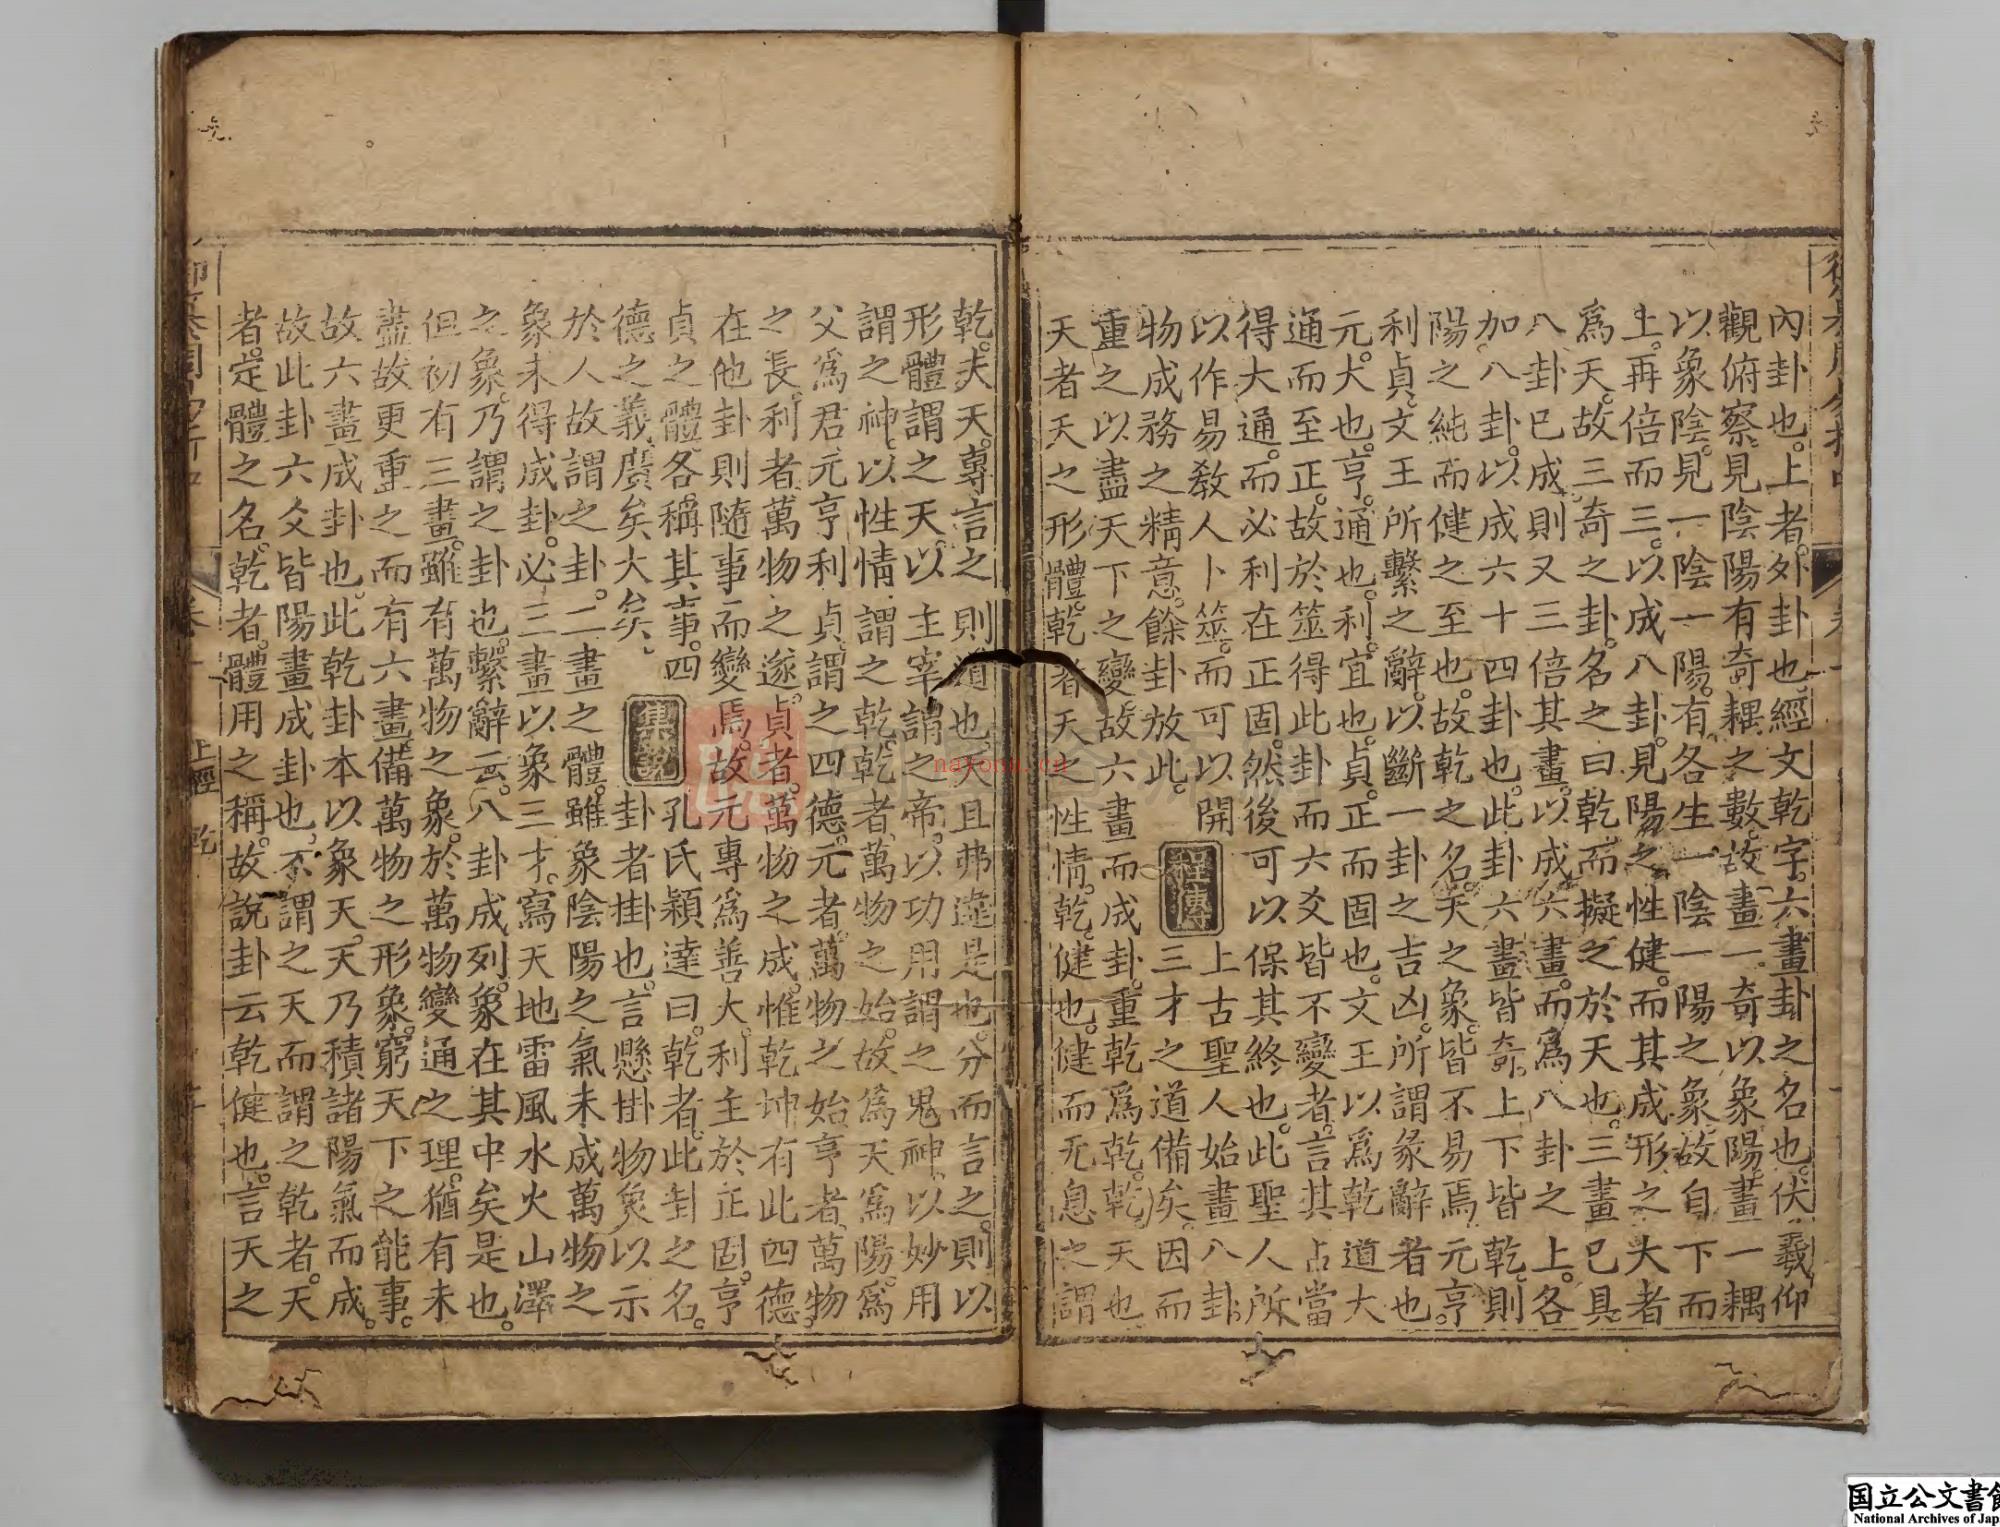 內卦也。上者。外卦也。經文乾字。六畫卦之名也。伏羲仰
觀俯察。見陰陽有奇耦之數。故畫一奇以象陽。畫一耦
以象陰。見一陰一陽。有各生一陰一陽之象。故自下而
上。再倍而三。以成八卦。見陽之性健。而其成形之大者
爲天。故三奇之卦。名之曰乾。而擬之於天也。三畫已具。
八卦已成。則又三倍其畫。以成六畫。而爲八卦之上。各
加八卦。以成六十四卦也。此卦六畫皆奇。上下皆乾。則
陽之純而健之至也。故乾之名。天之象。皆不易焉。元亨
利貞。文王所繫之辭。以斷一卦之吉凶。所謂彖辭者也。
元。大也。亨。通也。利。宜也。貞。正而固也。文王以爲乾道大
通而至正。故於筮得此卦而六爻皆不變者。言其占當
得大通。而必利在正固。然後可以保其終也。此聖人所
以作易教人卜筮。而可以開
物成務之精意。餘卦放此。
程傳
上古聖人始畫八卦。
三才之道備矣。因而
重之以盡天下之變。故六畫而成卦。重乾爲乾。乾。天也。
天者天之形體。乾者天之性情。乾。健也。健而无息之謂
乾。夫天。專言之則道也。天且弗違是也。分而言之。則以
形體謂之天。以主宰謂之帝。以功用謂之鬼神。以妙用
謂之神。以性情謂之乾。乾者。萬物之始。故爲天爲陽。爲
父爲君。元亨利貞。謂之四德。元者。萬物之始。亨者。萬物
之長。利者。萬物之遂。貞者。萬物之成。惟乾坤有此四德。
在他卦則隨事而變焉。故元專爲善大。利主於正固。亨
貞之體。各稱其事。四
德之義。廣矣大矣。
集說
孔氏穎達曰。乾者。此卦之名。
卦者掛也。言懸掛物象以示
於人。故謂之卦。二畫之體。雖象陰陽之氣。未成萬物之
象。未得成卦。必三畫以象三才。寫天地雷風水火山澤
之象。乃謂之卦也。繫辭云。八卦成列。象在其中矣是也。
但初有三畫。雖有萬物之象。於萬物變通之理。猶有未
盡。故更重之而有六畫。備萬物之形象。窮天下之能事。
故六畫成卦也。此乾卦本以象天。天乃積諸陽氣而成。
故此卦六爻皆陽畫成卦也。不謂之天而謂之乾者。天
者。定體之名。乾者。體用之稱。故說卦云乾健也。言天之
卷一
上經 乾
国立公文書館
National Archives of Jap
nayona.cn